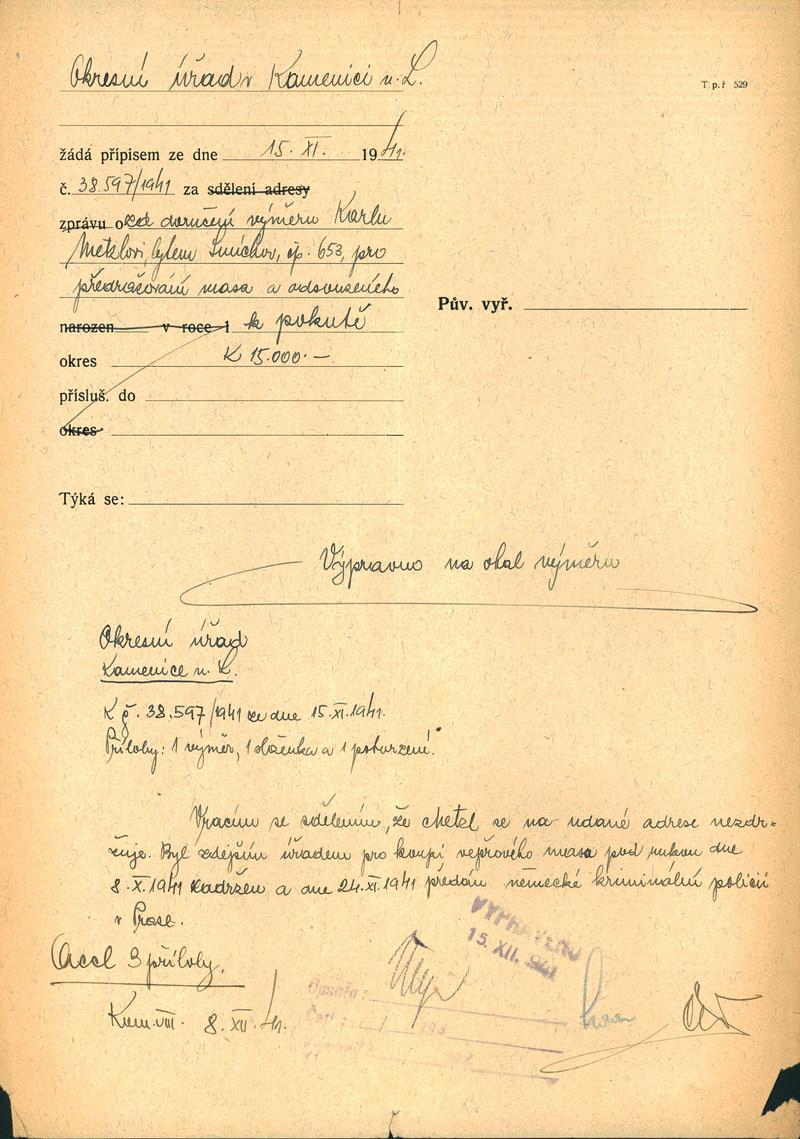 Okresní úřad v Kamenici n. L.
T. p. ř 529
žádá přípisem ze dne 15. XI. 1941.
č. 38.597/1941 za sdělení adresy
zprávu o doručení výměru Karlu
Metzlovi, bytem Smíchov, čp. 653, pro
předražování masa a odsouzeného
narozen v roce 1 k pokutě
Pův. vyř.
okres K 15.000.—
přísluš. do
okres
Týká se:
Výpravno na obal výměru
Okresní úřad
Kamenice n. L.
K č. 38.597/1941 ze dne 15.XI.1941.
Přílohy: 1 výměr, 1 složenka a 1 potvrzení.
Vracím se sdělením, že Metzl se na udané adrese nezdr=
žuje. Byl zdejším úřadem pro koupi vepřového masa pod rukou dne
8.X.1941 zadržen a dne 24.XI.1941 předán německé kriminální policii
v Praze.
VYPRAVENO
15. XII. 1941
Accl 3 přílohy.
Opsáno:
Kom.VIII. 8. XII. 41.